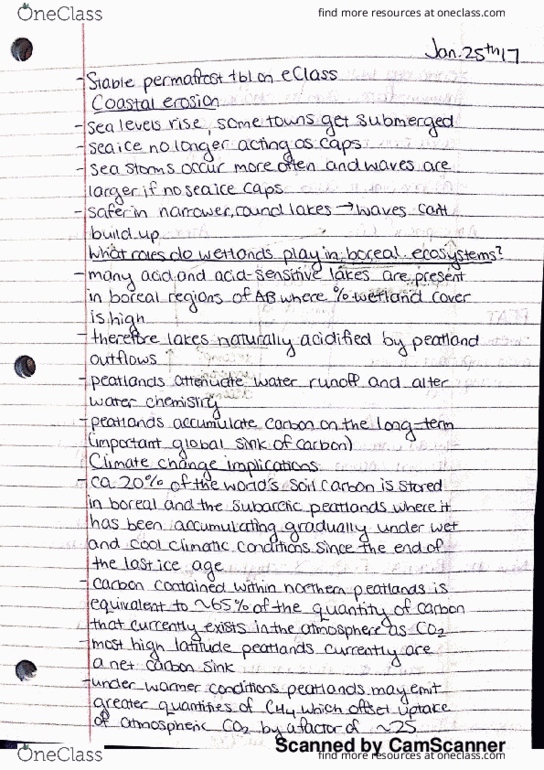 OneClass
find more resources at oneclass.com
Jan. 25th 17
- Stable permafrost tbl on eClass
Coastal erosion
- sea levels rise, some towns get submerged
- sea ice no longer acting as caps
- sea storms occur more often and waves are
larger if no sea ice caps
- safer in narrower, round lakes → waves can't
build up
What roles do wetlands play in boreal ecosystems?
- many acid and acid-sensitive lakes are present
in boreal regions of AB where % wetland cover
is high
- therefore lakes naturally acidified by peatland
outflows
- peatlands attenuate water runoff and alter
water chemistry
- peatlands accumulate carbon on the long-term
(important global sink of carbon)
Climate change implications
- ca 20% of the world's soil carbon is stored
in boreal and the subarctic peatlands where it
has been accumulating gradually under wet
and cool climatic conditions since the end of
the last ice age
- carbon contained within northern peatlands is
equivalent to ~65% of the quantity of carbon
that currently exists in the atmosphere as CO2
- most high latitude peatlands currently are
a net carbon sink
- under warmer conditions peatlands may emit
greater quantities of CH4 which offset uptake
of atmospheric CO2 by a factor of ~25
Scanned by CamScanner
OneClass
find more resources at oneclass.com